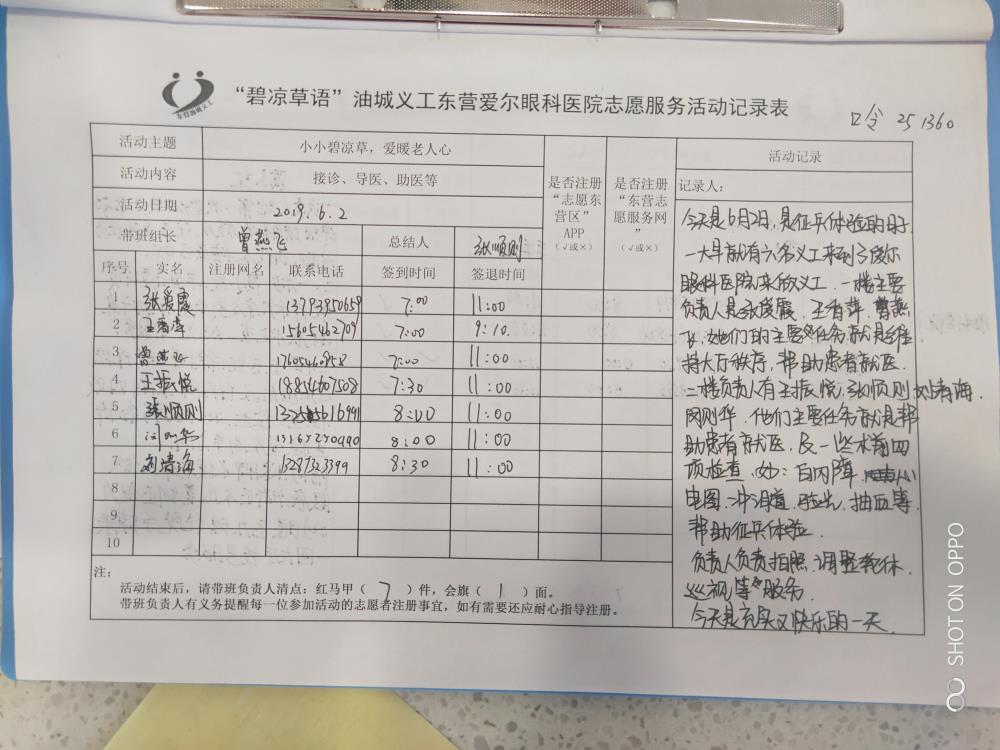 东营油城义工
“碧凉草语”油城义工东营爱尔眼科医院志愿服务活动记录表
口令 251360
活动主题 小小碧凉草，爱暖老人心
活动内容 接诊、导医、助医等
活动日期 2019.6.2
带班组长 曾燕飞 总结人 张顺则
序号 实名 注册网名 联系电话 签到时间 签退时间
是否注册“志愿东营区”APP（√或×）
是否注册“东营志愿服务网”（√或×）
1 张爱霞 13793950659 7:00 11:00
2 王香萍 15605462709 7:00 9:10
3 曾燕飞 17605460858 7:00 11:00
4 王振悦 18854607508 7:30 11:00
5 张顺则 11:00 8:00
6 8:00 11:00
7 刘春海 13287323399 8:30 11:00
8
9
10
注：
活动结束后，请带班负责人清点：红马甲（7）件，会旗（1）面。
带班负责人有义务提醒每一位参加活动的志愿者注册事宜，如有需要还应耐心指导注册。
活动记录
记录人：
今天是6月2日，是征兵体检的日子
一大早就有六名义工来到了爱尔
眼科医院来做义工．一楼主要
负责人是张爱霞．王香萍．曾燕
飞．她们的主要任务就是维
持大厅秩序，帮助患者就医．
二楼负责人有王振悦，张顺则，刘春海．
闫刚华．他们主要任务就是帮
助患者就医．及一些术前四
项检查．如：白内障．心
电图．冲泪道．验光．抽血等．
帮助征兵体检
负责人负责拍照．调整轮休．
巡视等服务．
今天是充实又快乐的一天．
SHOT ON OPPO